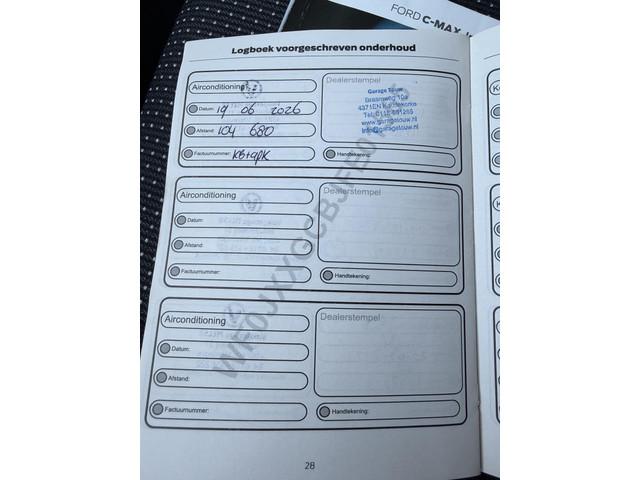 FORD C-MAX
Logboek voorgeschreven onderhoud
Airconditioning
Datum: 19 06 2026
Afstand: 104 680
Factuurnummer: KB+apk
Dealerstempel
Garage Touw
4371EN Koudekerke
www.garagetouw.nl
info@garagetouw.nl
Handtekening:
Airconditioning
Datum:
Afstand:
Factuurnummer:
Dealerstempel
Handtekening:
Airconditioning
Datum:
Afstand:
Factuurnummer:
Dealerstempel
Handtekening:
28